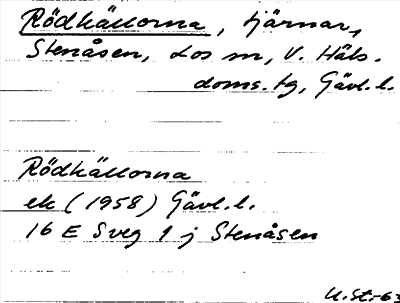 Rödkällorna, tjärnar,
Stenåsen, Los sn, V. Häls.
doms. tg, Gävl. l.
Rödkällorna
ek (1958) Gävl. l.
16 E Sveg 1 j Stenåsen
U. St-63